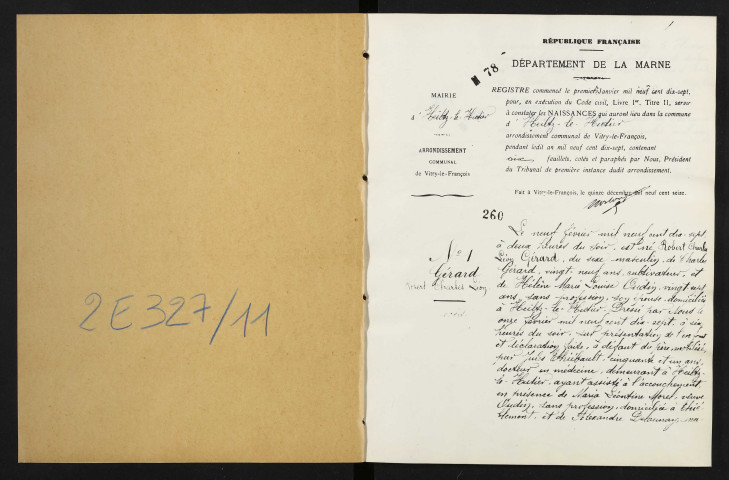 2E327/11
1
RÉPUBLIQUE FRANÇAISE
M 78
DÉPARTEMENT DE LA MARNE
MAIRIE
d'Heiltz-le-Hutier
ARRONDISSEMENT
COMMUNAL
de Vitry-le-François
REGISTRE commencé le premier Janvier mil neuf cent dix-sept,
pour, en exécution du Code civil, Livre Ier, Titre II, servir
à constater les NAISSANCES qui auront lieu dans la commune
d'Heiltz-le-Hutier
arrondissement communal de Vitry-le-François,
pendant ledit an mil neuf cent dix-sept, contenant
six feuillets, cotés et paraphés par Nous, Président
du Tribunal de première instance dudit arrondissement.
Fait à Vitry-le-François, le quinze décembre mil neuf cent seize.
260
No 1
Gérard
Robert Charles Léon
Le neuf février mil neuf cent dix-sept
à deux heures du soir, est né Robert Charles
Léon Gérard, du sexe masculin, de Charles
Gérard, vingt neuf ans, cultivateur, et
de Hélène Marie Louise Oudin, vingt
ans, sans profession, son épouse, domiciliés
à Heiltz-le-Hutier. Dressé par Nous le
onze février mil neuf cent dix-sept, à
heures du soir, sur présentation de l'enfant
et déclaration faite, à défaut du père mobilisé,
par Jules Thiébault, cinquante et un ans,
docteur en médecine, demeurant à Heiltz-
le-Hutier, ayant assisté à l'accouchement
en présence de Maria Léontine Moret, veuve
Oudin, sans profession, domiciliée à
et de Alexandre Delaunay,